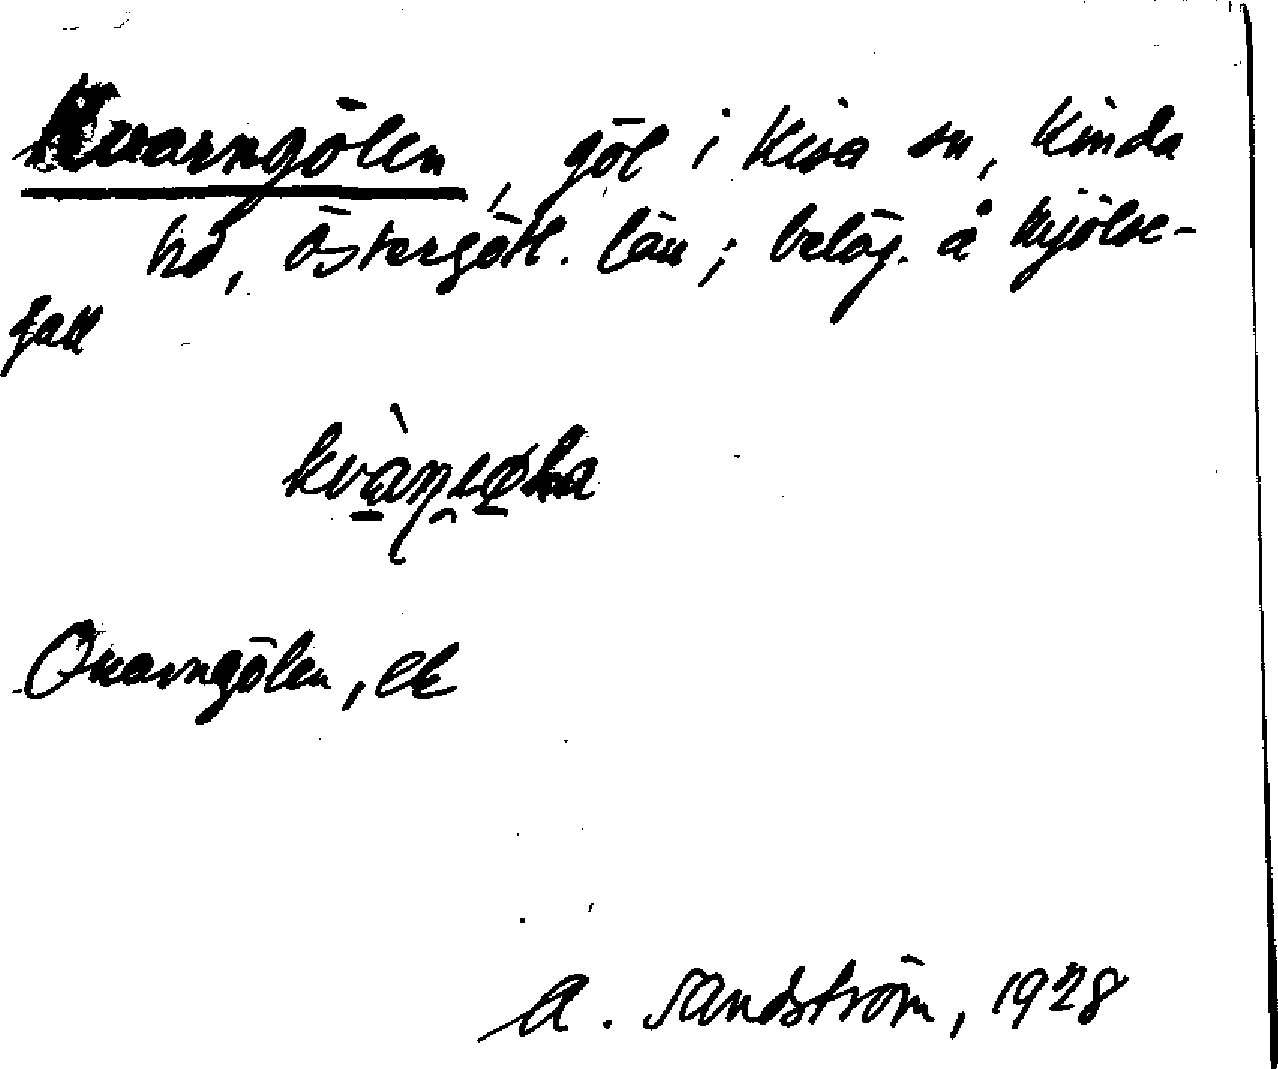 Kvarngölen, göl i Kisa sn, Kinda
hd, Östergötl. län; beläg. å Kjölse-
fall
Qvarngölen, ek
A. Sandström, 1928